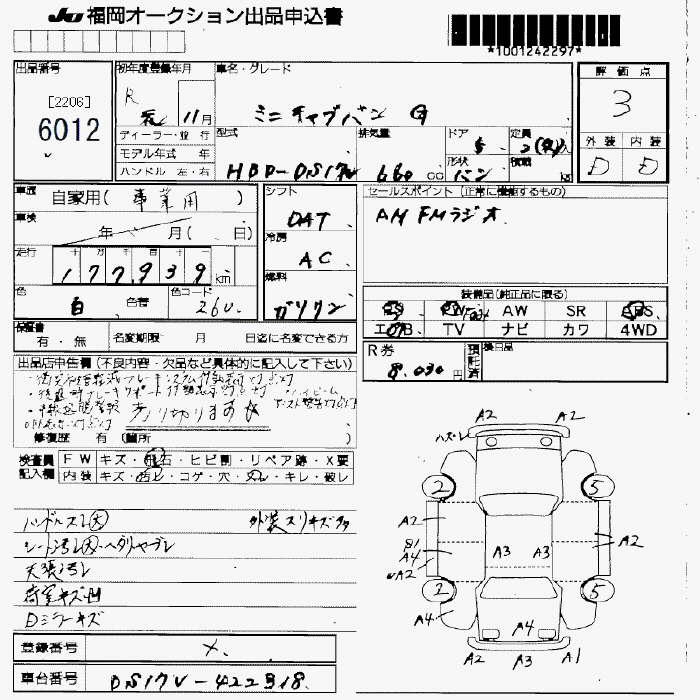 JU 福岡オークション出品申込書
*1001242297*
出品番号
[2206]
6012
初年度登録年月
R 元 11月
車名・グレード
ミニキャブバン G
評価点
3
外装 内装
D D
ディーラー・並行
モデル年式 年
ハンドル 左・右
型式
HBD-DS17V
排気量
660 cc
ドア
5
形状
バン
定員
2(4)人
積載
kg
車歴
自家用(事業用)
車検
年 月( 日)
走行
十 万 千 百 十 一
177,939 km
色
白 色替
色コード
26U
シフト
DAT
冷房
AC
燃料
ガソリン
セールスポイント(正常に機能するもの)
AM FMラジオ
装備品(純正品に限る)
PS PW AW SR ABS
エアB TV ナビ カワ 4WD
保証書
有・無
名変期限 月 日迄に名変できる方
R券
8,030円
預託済
後日品
出品店申告欄(不良内容・欠品など具体的に記入して下さい)
売り切ります
修復歴 有(箇所 )
検査員記入欄
FW キズ・飛石・ヒビ割・リペア跡・X要
内装 キズ・汚レ・コゲ・穴・スレ・キレ・破レ
ハンドルスレ大 外装スリキズ多
シート汚レ大・ヘタリ・ヤブレ
天張汚レ
荷室キズ凹
Dミラーキズ
登録番号
×
車台番号
DS17V-422318
A2 A2
ハズレ
2 5
A2
81
A4
A2
A3 A3
A2
2 5
A4
A4
A2 A3 A1